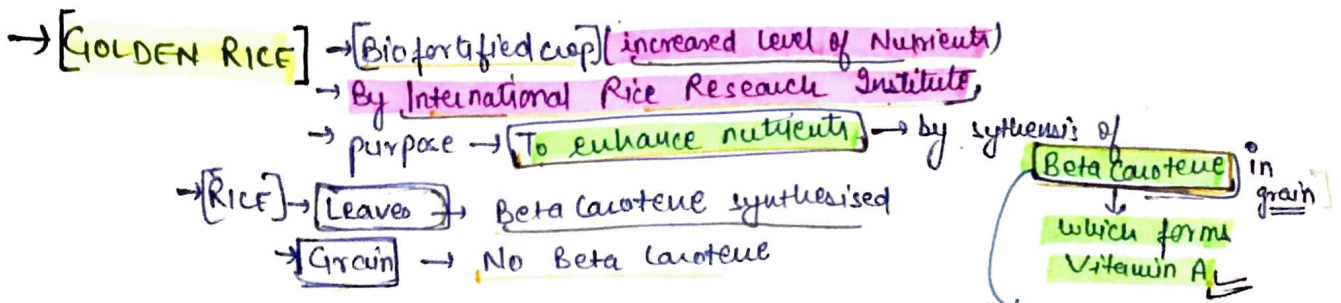 → [GOLDEN RICE] → [Biofortified crop] (increased level of Nutrients)
→ By International Rice Research Institute,
→ purpose → [To enhance nutrients] → by sythesis of
[Beta Carotene] in grain
↓
which forms
Vitamin A
→ [RICE] → [Leaves] → Beta Carotene synthesised
→ [Grain] → No Beta Carotene